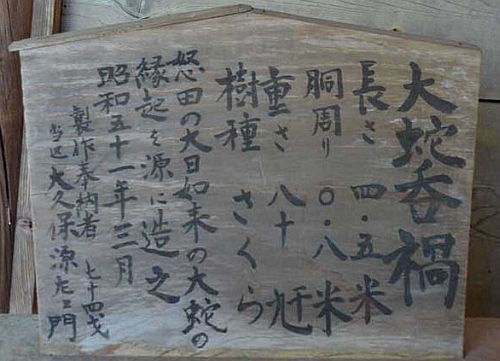 大蛇呑禍
長さ 四・五米
胴周り 〇・八米
重さ 八十瓩
樹種 さくら
怒田の大日如来の大蛇の
縁起を源に造之
昭和五十一年三月
製作奉納者 七十四才
大久保源左ヱ門